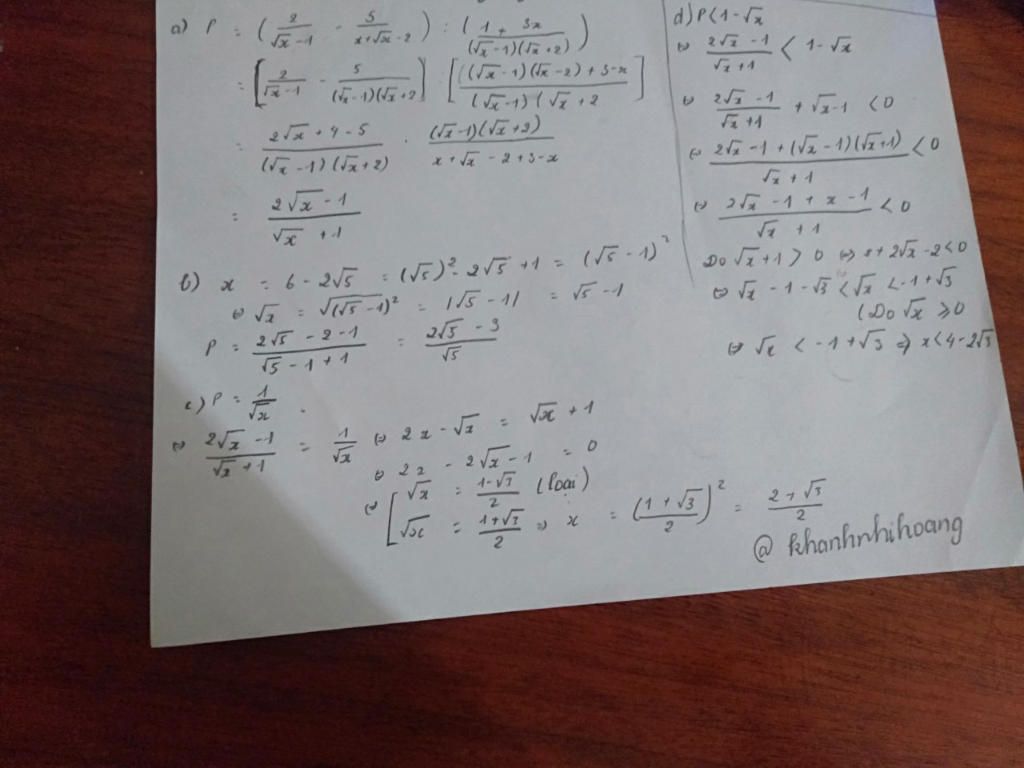 a) P = (2/(√x-1) - 5/(x+√x-2)) : (1 + 3x/((√x-1)(√x+2)))
= [2/(√x-1) - 5/((√x-1)(√x+2))] : [((√x-1)(√x-2)+3-x)/((√x-1)(√x+2]
= (2√x+4-5)/((√x-1)(√x+2)) · ((√x-1)(√x+2))/(x+√x-2+3-x)
= (2√x-1)/(√x+1)
b) x = 6-2√5 = (√5)²-2√5+1 = (√5-1)²
⇔ √x = √(√5-1)² = |√5-1| = √5-1
P = (2√5-2-1)/(√5-1+1) = (2√5-3)/√5
c) P = 1/√x.
⇔ (2√x-1)/(√x+1) = 1/√x ⇔ 2x-√x = √x+1
⇔ 2x-2√x-1 = 0
⇔ [√x = (1-√3)/2 (loại)
√x = (1+√3)/2 ⇒ x = ((1+√3)/2)² = (2+√3)/2
@ khanhnhihoang
d) P<1-√x
⇔ (2√x-1)/(√x+1) < 1-√x
⇔ (2√x-1)/(√x+1) + √x-1 <0
⇔ (2√x-1+(√x-1)(√x+1))/(√x+1) <0
⇔ (2√x-1+x-1)/(√x+1) <0
Do √x+1>0 ⇔ x+2√x-2<0
⇔ √x -1-√3 <√x <-1+√3
(Do √x ⩾0
⇔ √x <-1+√3 ⇒ x<4-2√3